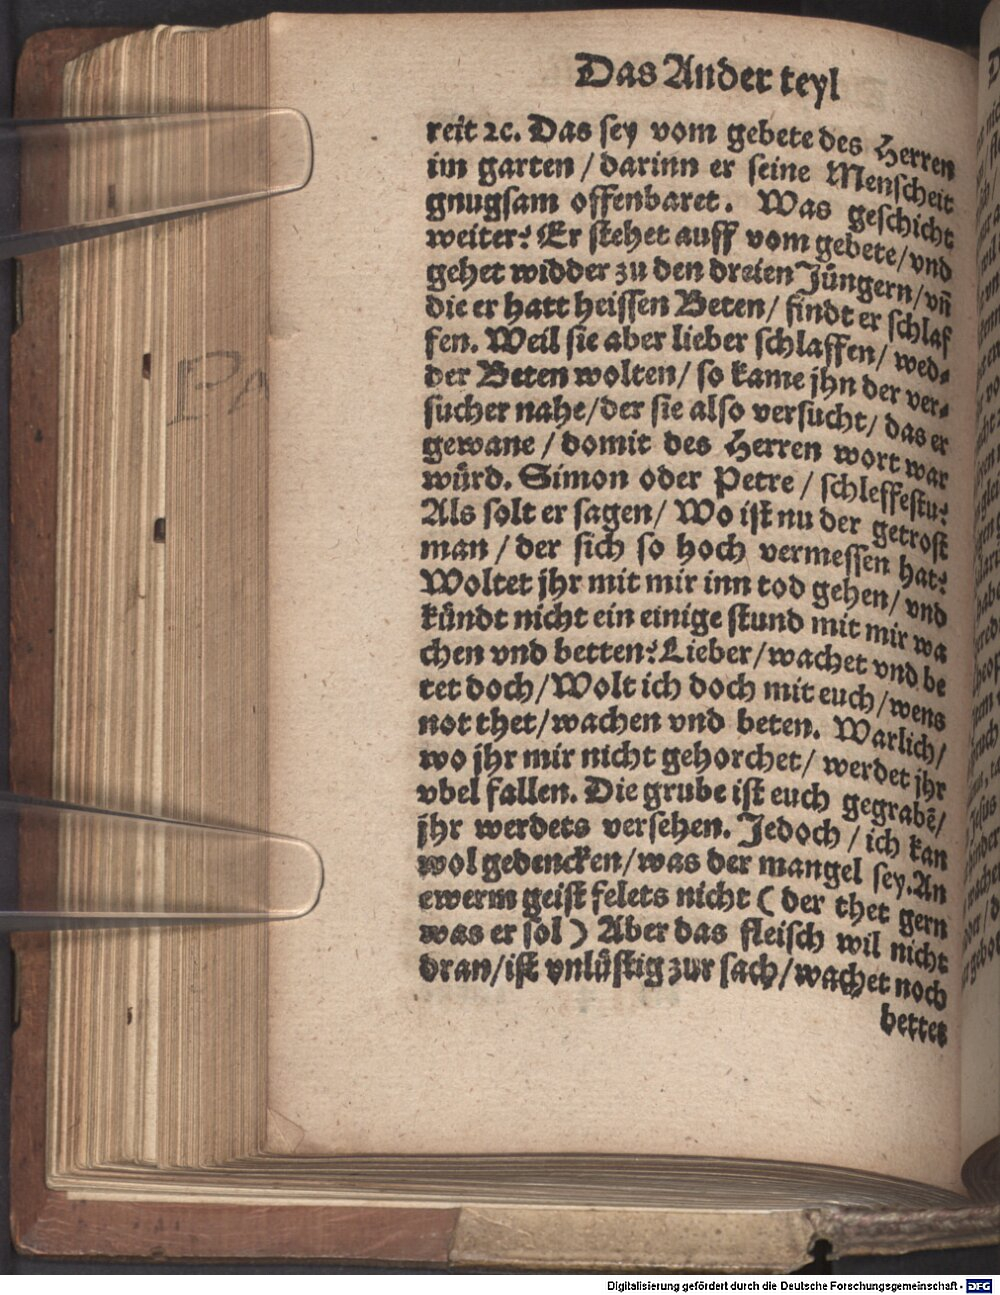 Das Ander teyl
reit ꝛc. Das sey vom gebete des Herren
im garten / darinn er seine Menscheit
gnugsam offenbaret. Was geschicht
weiter? Er stehet auff vom gebete/ vnd
gehet widder zu den dreien Jüngern/ vñ
die er hatt heissen Beten/ findt er schlaf
fen. Weil sie aber lieber schlaffen/ wed⸗
der Beten wolten/ so kame jhn der ver⸗
sucher nahe/der sie also versucht/ das er
gewane / domit des Herren wort war
würd. Simon oder Petre / schleffestu?
Als solt er sagen/ Wo ist nu der getrost
man / der sich so hoch vermessen hat?
Woltet jhr mit mir inn tod gehen/ vnd
kündt nicht ein einige stund mit mir wa
chen vnd betten? Lieber/wachet vnd be
tet doch/Wolt ich doch mit euch/ wens
not thet/wachen vnd beten. Warlich/
wo jhr mir nicht gehorchet/ werdet jhr
vbel fallen. Die grube ist euch gegrabẽ/
jhr werdets versehen. Jedoch / ich kan
wol gedencken/was der mangel sey. An
ewerm geist felets nicht ( der thet gern
was er sol ) Aber das fleisch wil nicht
dran/ist vnlüstig zur sach/wachet noch
bettet
PA
Digitalisierung gefördert durch die Deutsche Forschungsgemeinschaft - DFG